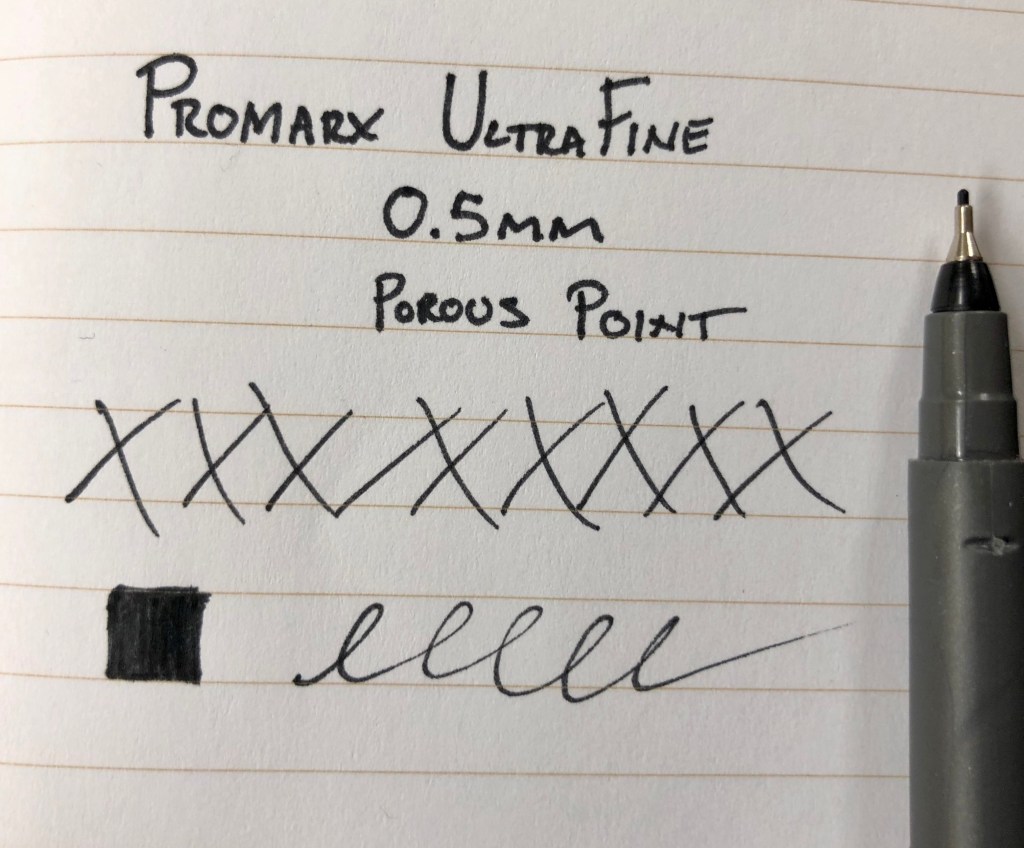 PROMARX ULTRAFINE
0.5MM
POROUS POINT
XXXXXXXXX